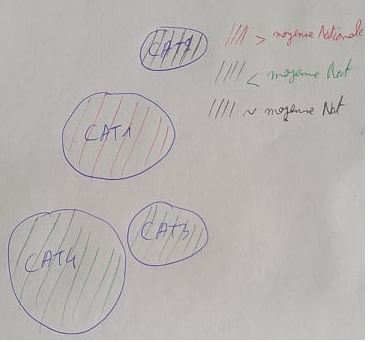 CAT2
> moyenne Nationale
< moyenne Nat
~ moyenne Nat
CAT1
CAT3
CAT4